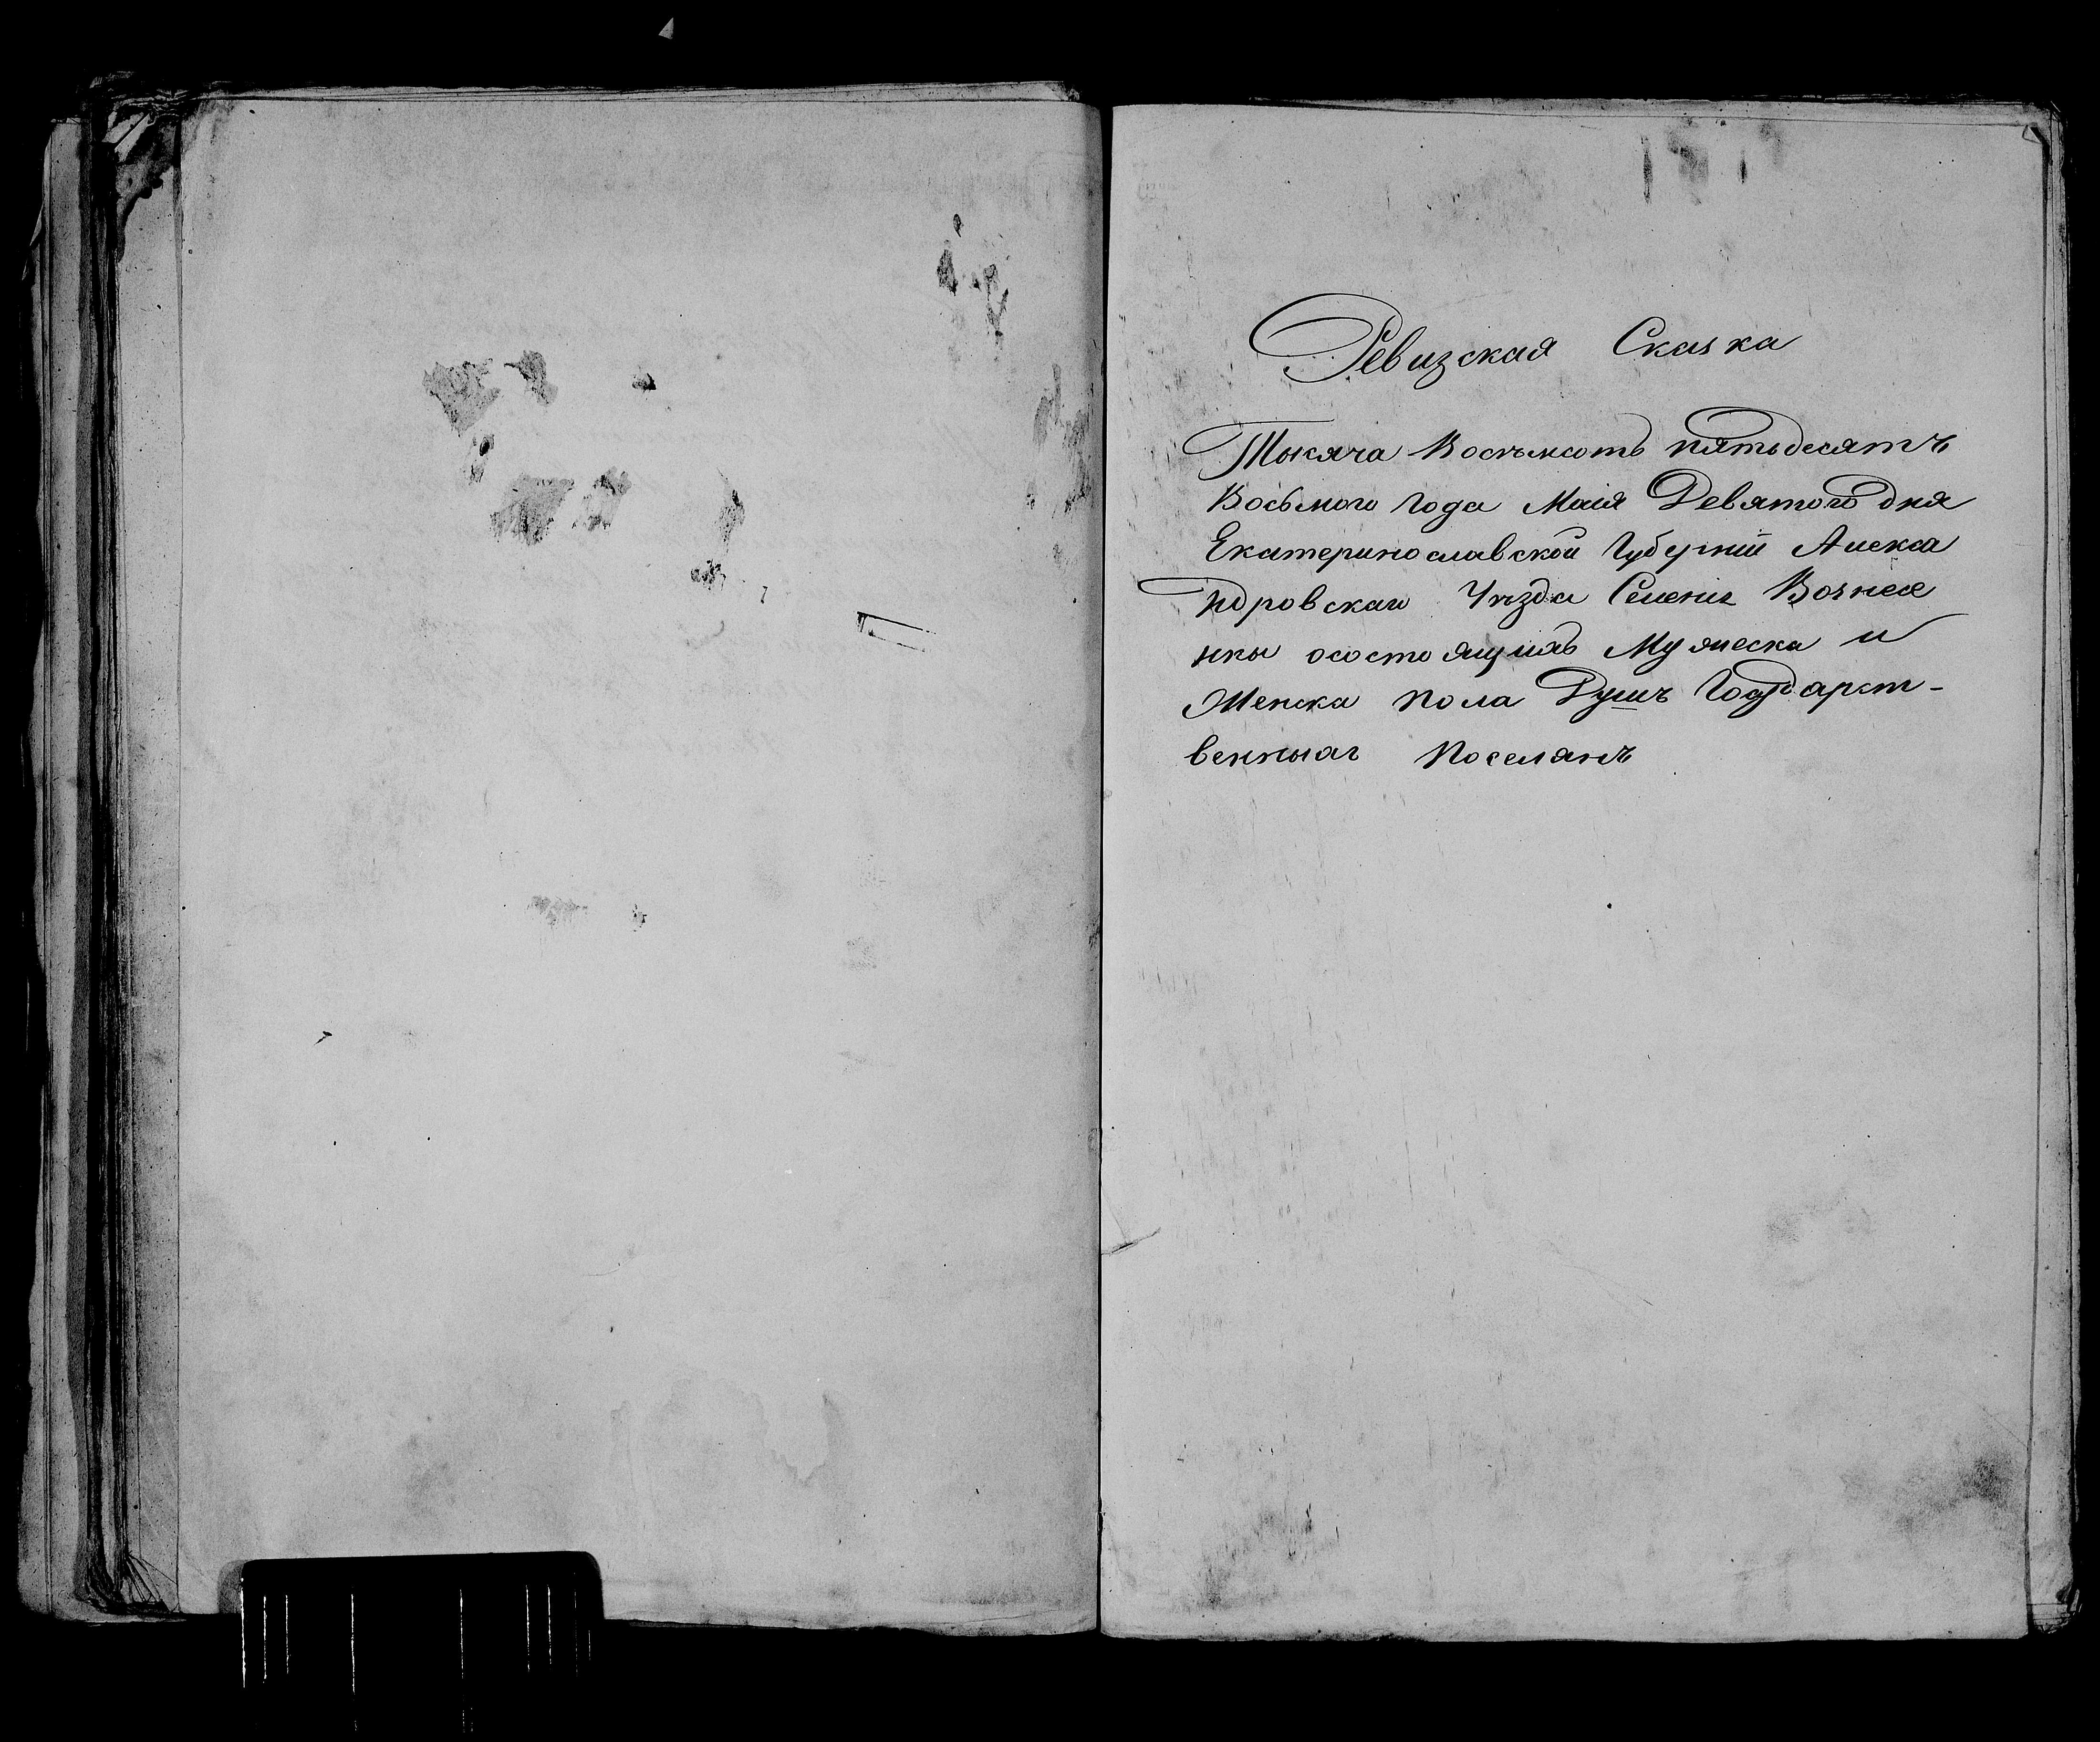 Ревизская Сказка
Тысяча Восъмсотъ пятьдесятъ
Восьмого года Маія Девятого дня
Екатеринославской Губерніи Алекса
ндровскаго Уѣзда Селенія Вознесе
нки осостоящихъ Мужеска и
Женска пола Душъ Государст-
венныхъ Поселянъ